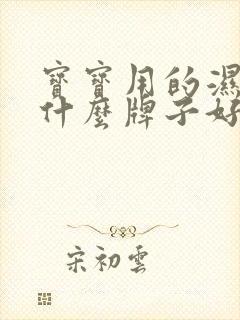 寶寶用的濕
什麼牌子好
宋初雲